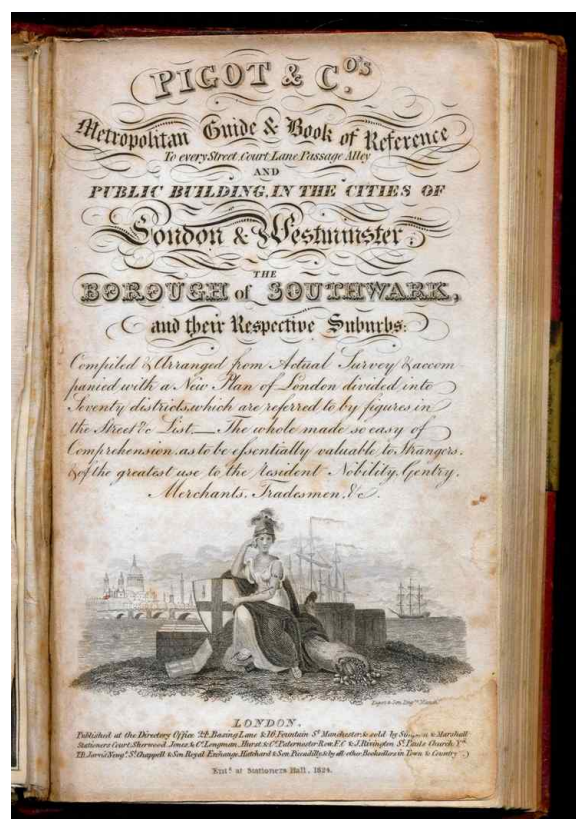 PIGOT & Co's
Metropolitan Guide & Book of Reference
To every Street Court Lane Passage Alley
AND
PUBLIC BUILDING, IN THE CITIES OF
London & Westminster,
THE
BOROUGH of SOUTHWARK,
and their Respective Suburbs:
Compiled & Arranged from Actual Survey & accom
panied with a New Plan of London divided into
Seventy districts, which are referred to by figures in
the Street &c List.— The whole made so easy of
Comprehension, as to be essentially valuable to Strangers,
& of the greatest use to the resident Nobility, Gentry,
Merchants, Tradesmen, &c.
Pigot & Son Engrs Manchr
LONDON.
Published at the Directory Office 24 Basing Lane & 16 Fountain St Manchester & sold by Simpkin & Marshall
Stationers Court, Sherwood Jones & Co Longman, Hurst & Co Paternoster Row, F.C & J. Rivington St Pauls Church Yd
Newgt St Chappell & Son Royal Exchange, Hatchard & Son Picadilly & by all other Booksellers in Town & Country
Entd at Stationers Hall, 1824.